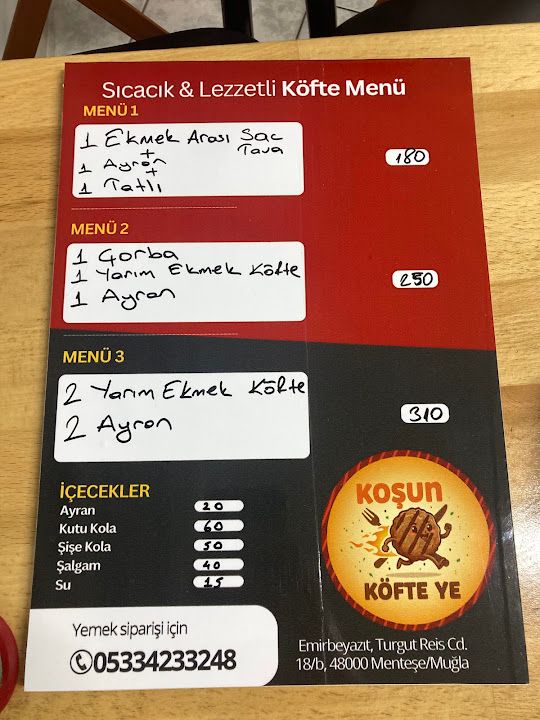 Sıcacık & Lezzetli Köfte Menü
MENÜ 1
1 Ekmek Arası Sac Tava
+
1 Ayran
+
1 Tatlı
180
MENÜ 2
1 Çorba
1 Yarım Ekmek Köfte
1 Ayran
250
MENÜ 3
2 Yarım Ekmek Köfte
2 Ayran
310
İÇECEKLER
Ayran 20
Kutu Kola 60
Şişe Kola 50
Şalgam 40
Su 15
KOŞUN
KÖFTE YE
Yemek siparişi için
05334233248
Emirbeyazıt, Turgut Reis Cd.
18/b, 48000 Menteşe/Muğla